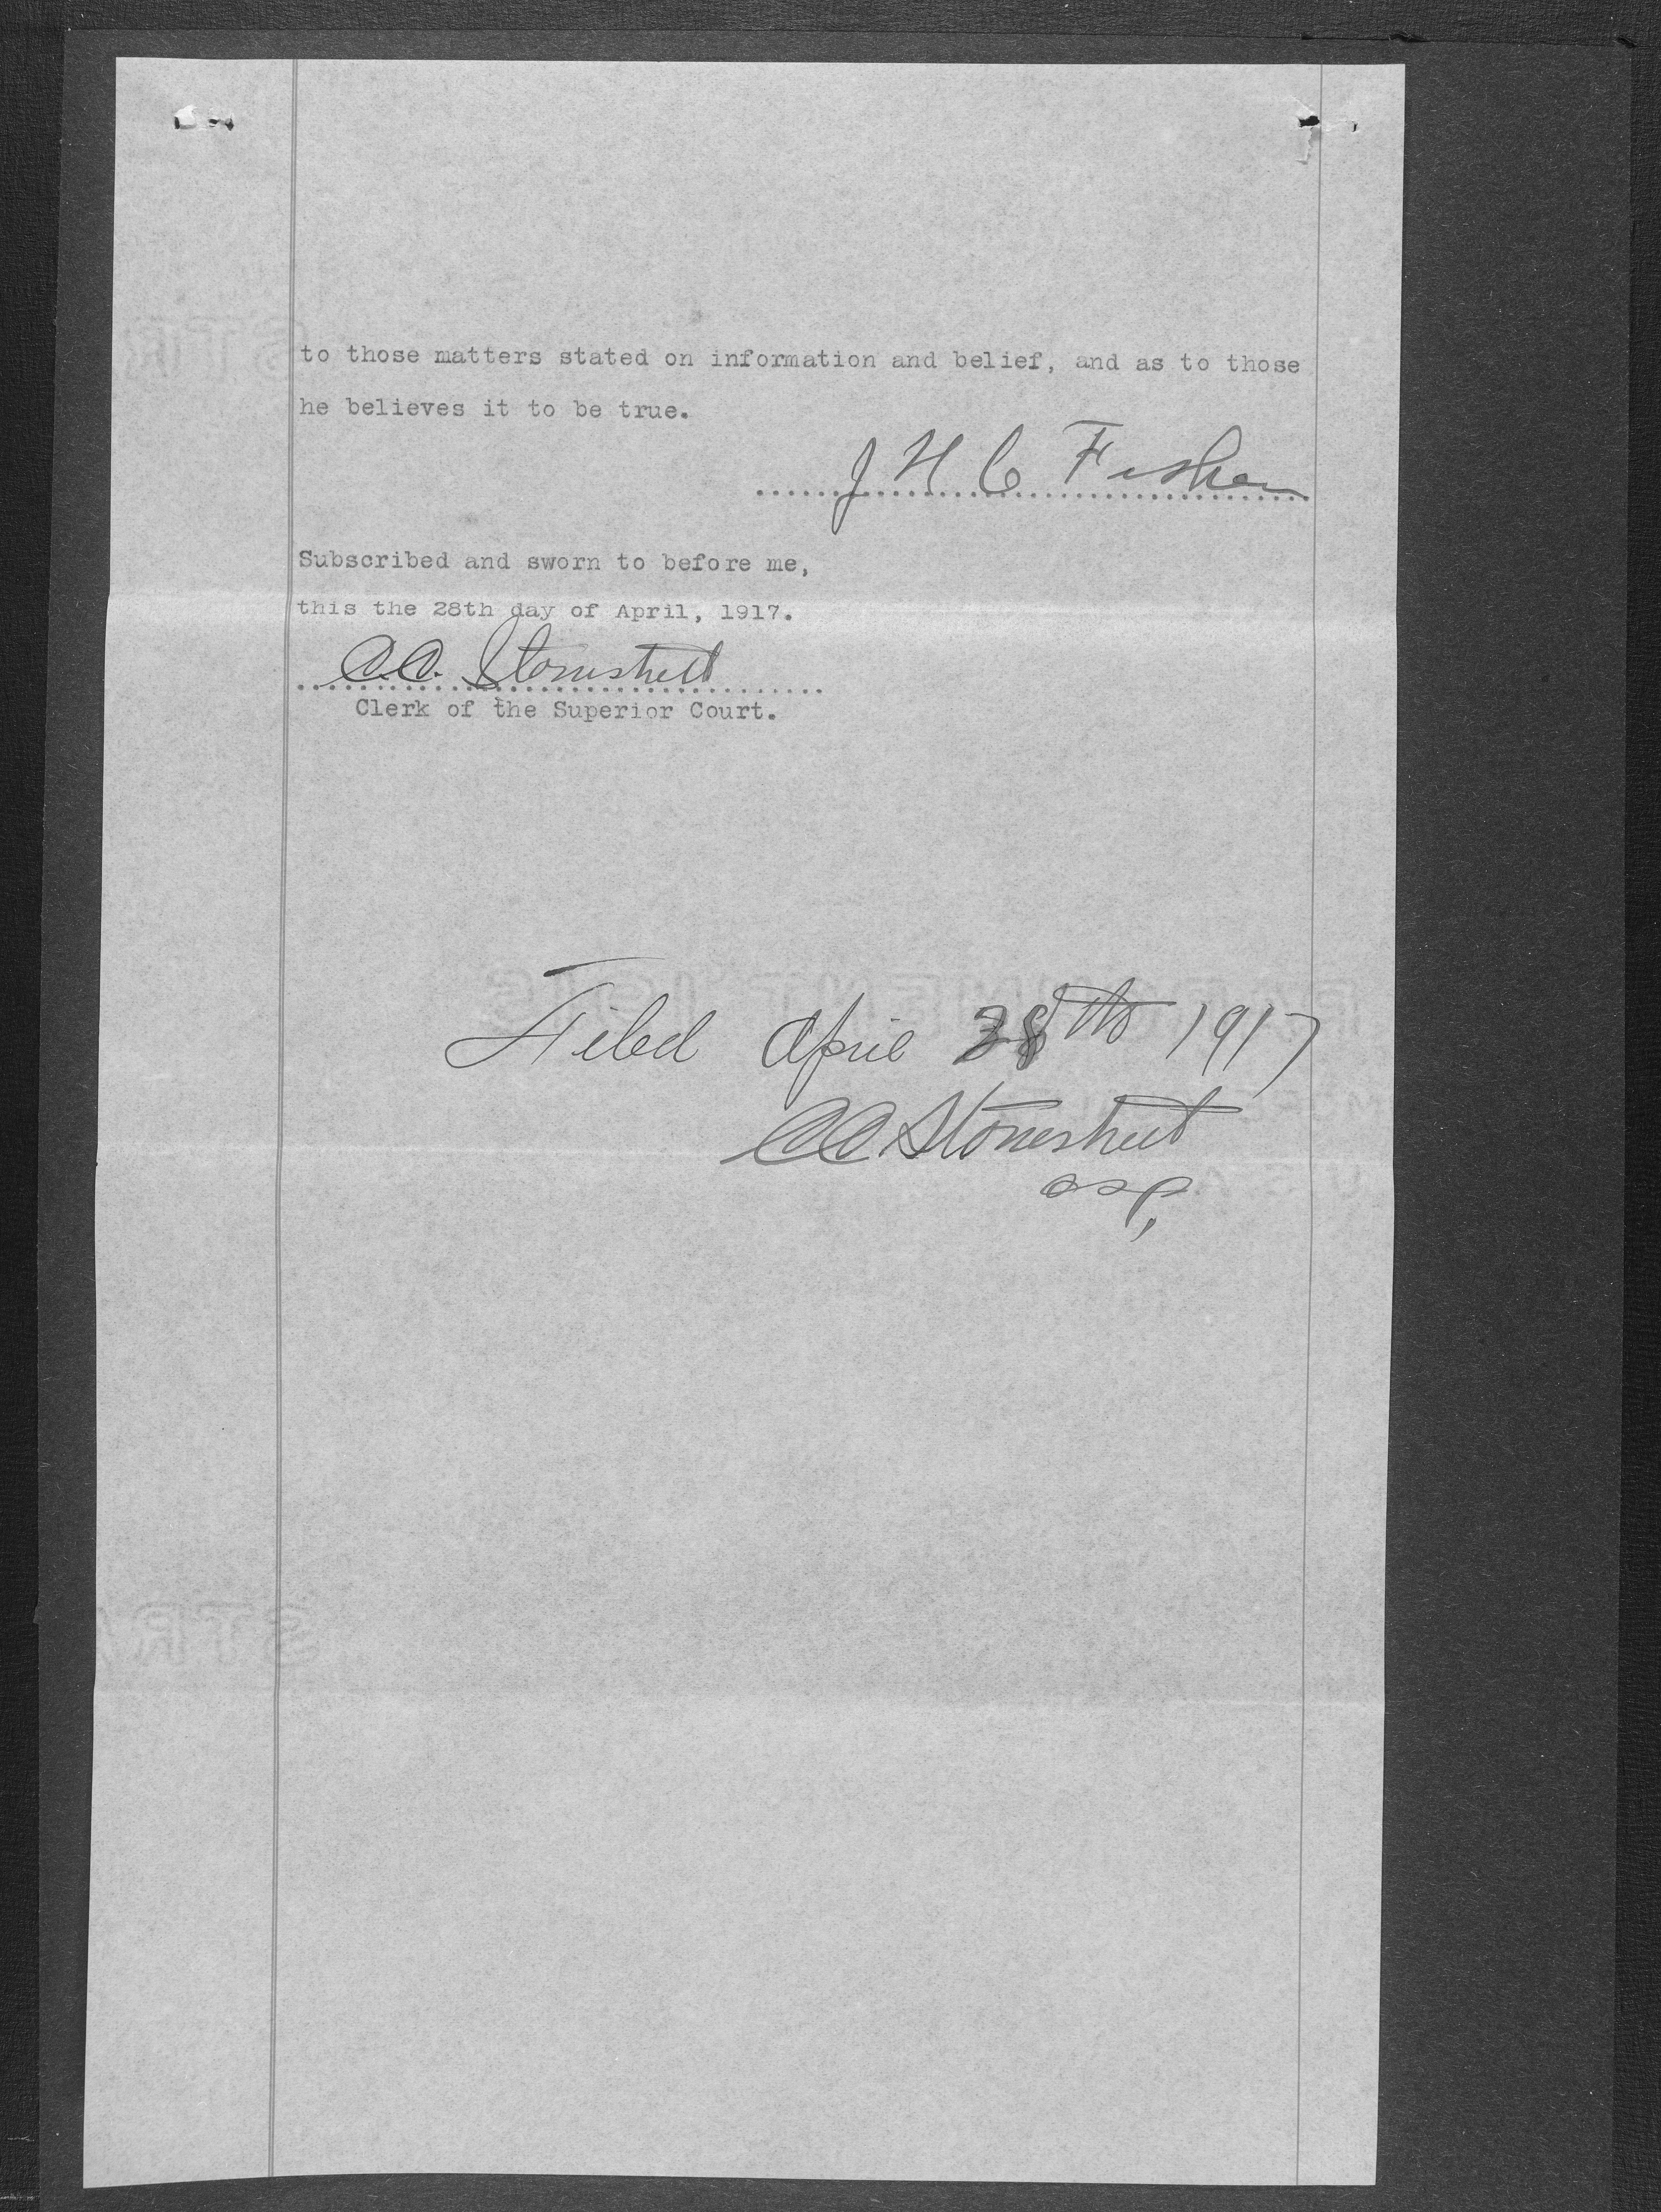 to those matters stated on information and belief, and as to those
he believes it to be true.
J H C Fisher
Subscribed and sworn to before me,
this the 28th day of April, 1917.
C.C. Stonestreet
Clerk of the Superior Court.
Filed April 28th 1917
CC Stonestreet
CSC,